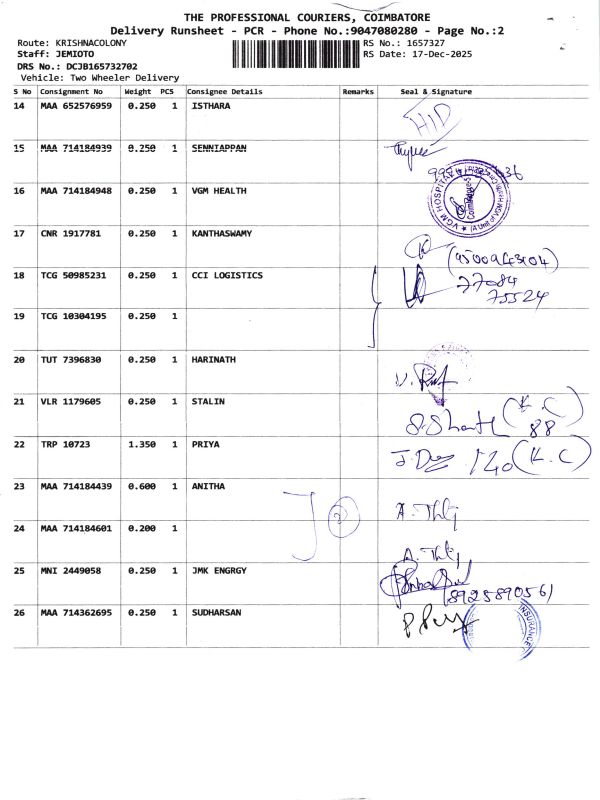 THE PROFESSIONAL COURIERS, COIMBATORE
Delivery Runsheet - PCR - Phone No.:9047080280 - Page No.:2
Route: KRISHNACOLONY RS No.: 1657327
Staff: JEMIOTO RS Date: 17-Dec-2025
DRS No.: DCJB165732702
Vehicle: Two Wheeler Delivery
S No Consignment No Weight PCS Consignee Details Remarks Seal & Signature
14 MAA 652576959 0.250 1 ISTHARA H/D
15 MAA 714184939 0.250 1 SENNIAPPAN
16 MAA 714184948 0.250 1 VGM HEALTH VGM HOSPITAL Coimbatore-5
17 CNR 1917781 0.250 1 KANTHASWAMY
18 TCG 50985231 0.250 1 CCI LOGISTICS 77084
75524
19 TCG 10304195 0.250 1
20 TUT 7396830 0.250 1 HARINATH
21 VLR 1179605 0.250 1 STALIN (K.C)
88
22 TRP 10723 1.350 1 PRIYA 140 (K.C)
23 MAA 714184439 0.600 1 ANITHA 2
24 MAA 714184601 0.200 1
25 MNI 2449058 0.250 1 JMK ENGRGY
(8925890561
26 MAA 714362695 0.250 1 SUDHARSAN INSURANCE